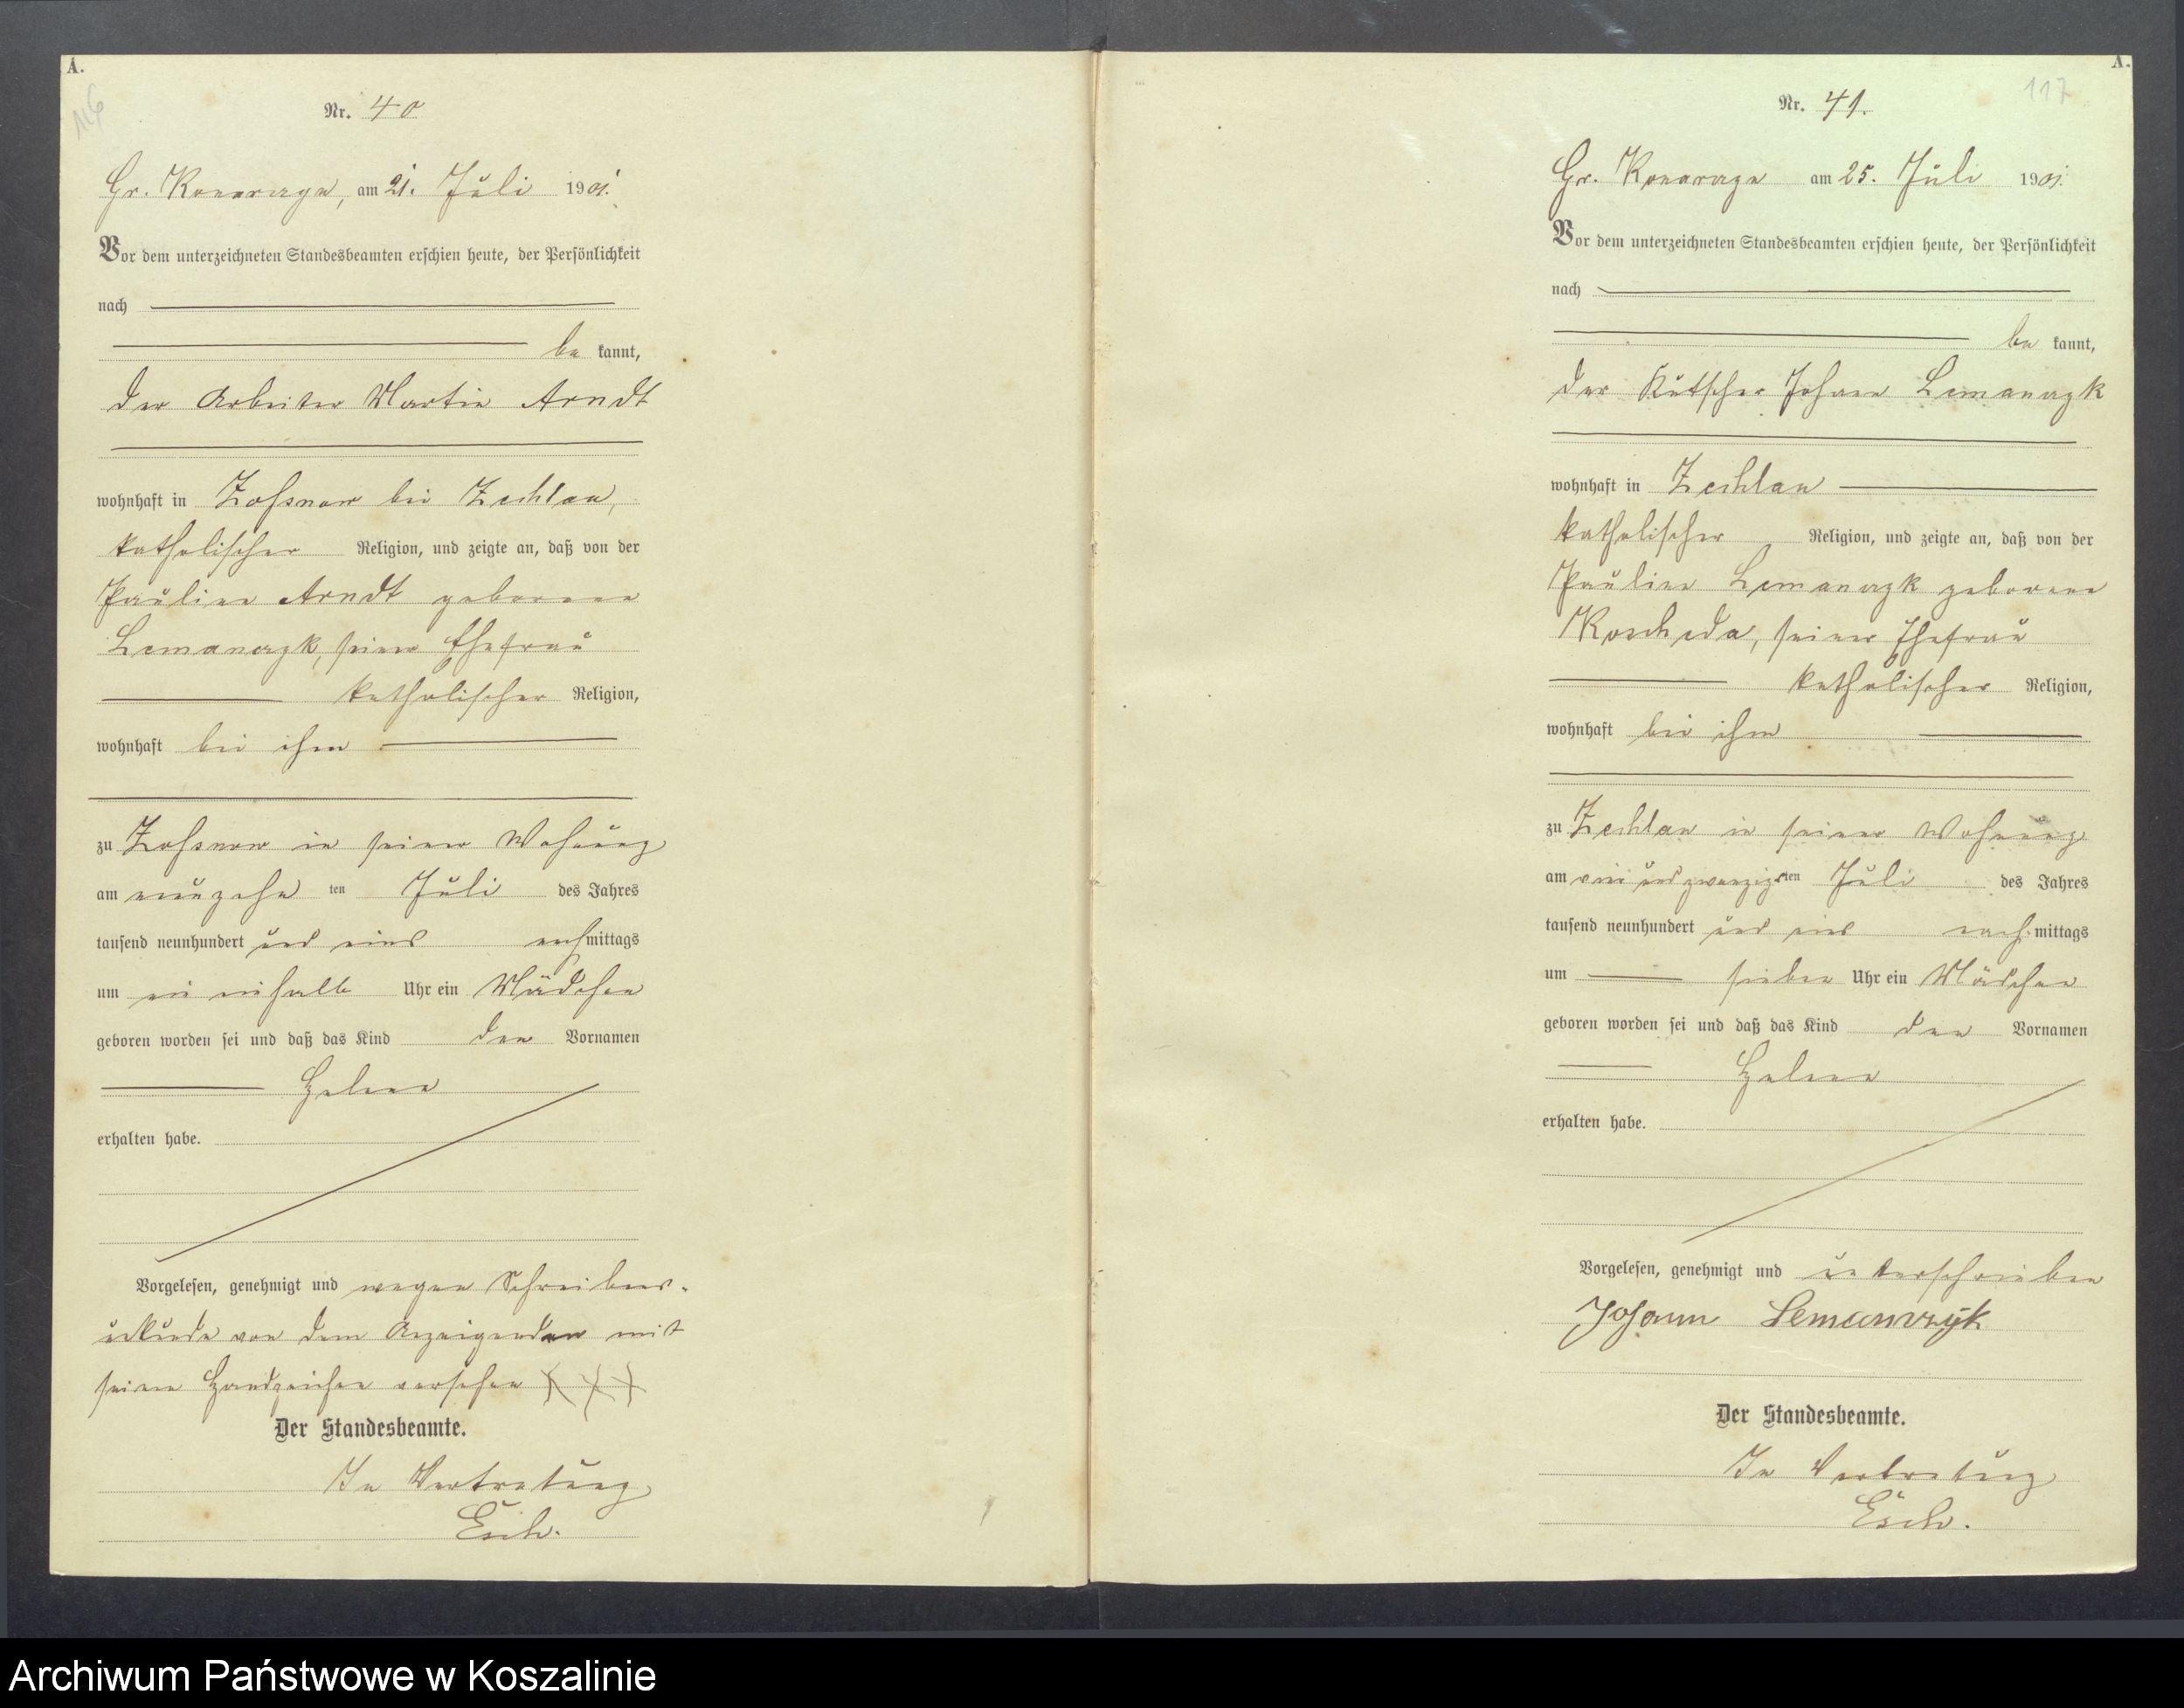 A.
116
Nr. 40
Gr. Konarczyn, am 21. Juli 1901.
Vor dem unterzeichneten Standesbeamten erschien heute, der Persönlichkeit
nach
be kannt,
der Arbeiter Martin Arndt
wohnhaft in bei Zechlau,
katholischer Religion, und zeigte an, daß von der
Pauline Arndt geborene
Lemanczyk, seiner Ehefrau
katholischer Religion,
wohnhaft bei ihm
zu in seiner Wohnung
am neunzehn ten Juli des Jahres
tausend neunhundert und eins nachmittags
um ein einhalb Uhr ein Mädchen
geboren worden sei und daß das Kind den Vornamen
Helene
erhalten habe.
Vorgelesen, genehmigt und wegen Schreibens-
unkunde von dem Anzeigenden mit
seinem Handzeichen versehen XXX
Der Standesbeamte.
In Vertretung
Esch.
A.
117
Nr. 41.
Gr. Konarczyn am 25. Juli 1901.
Vor dem unterzeichneten Standesbeamten erschien heute, der Persönlichkeit
nach
be kannt,
der Kutscher Johann Lemanczyk
wohnhaft in Zechlau
katholischer Religion, und zeigte an, daß von der
Pauline Lemanczyk geborene
seiner Ehefrau
katholischer Religion,
wohnhaft bei ihm
zu Zechlau in seiner Wohnung
am ein und zwanzigsten Juli des Jahres
tausend neunhundert und eins nachmittags
um sieben Uhr ein Mädchen
geboren worden sei und daß das Kind den Vornamen
Helene
erhalten habe.
Vorgelesen, genehmigt und unterschrieben
Johann Lemanczyk
Der Standesbeamte.
In Vertretung
Esch.
Archiwum Państwowe w Koszalinie